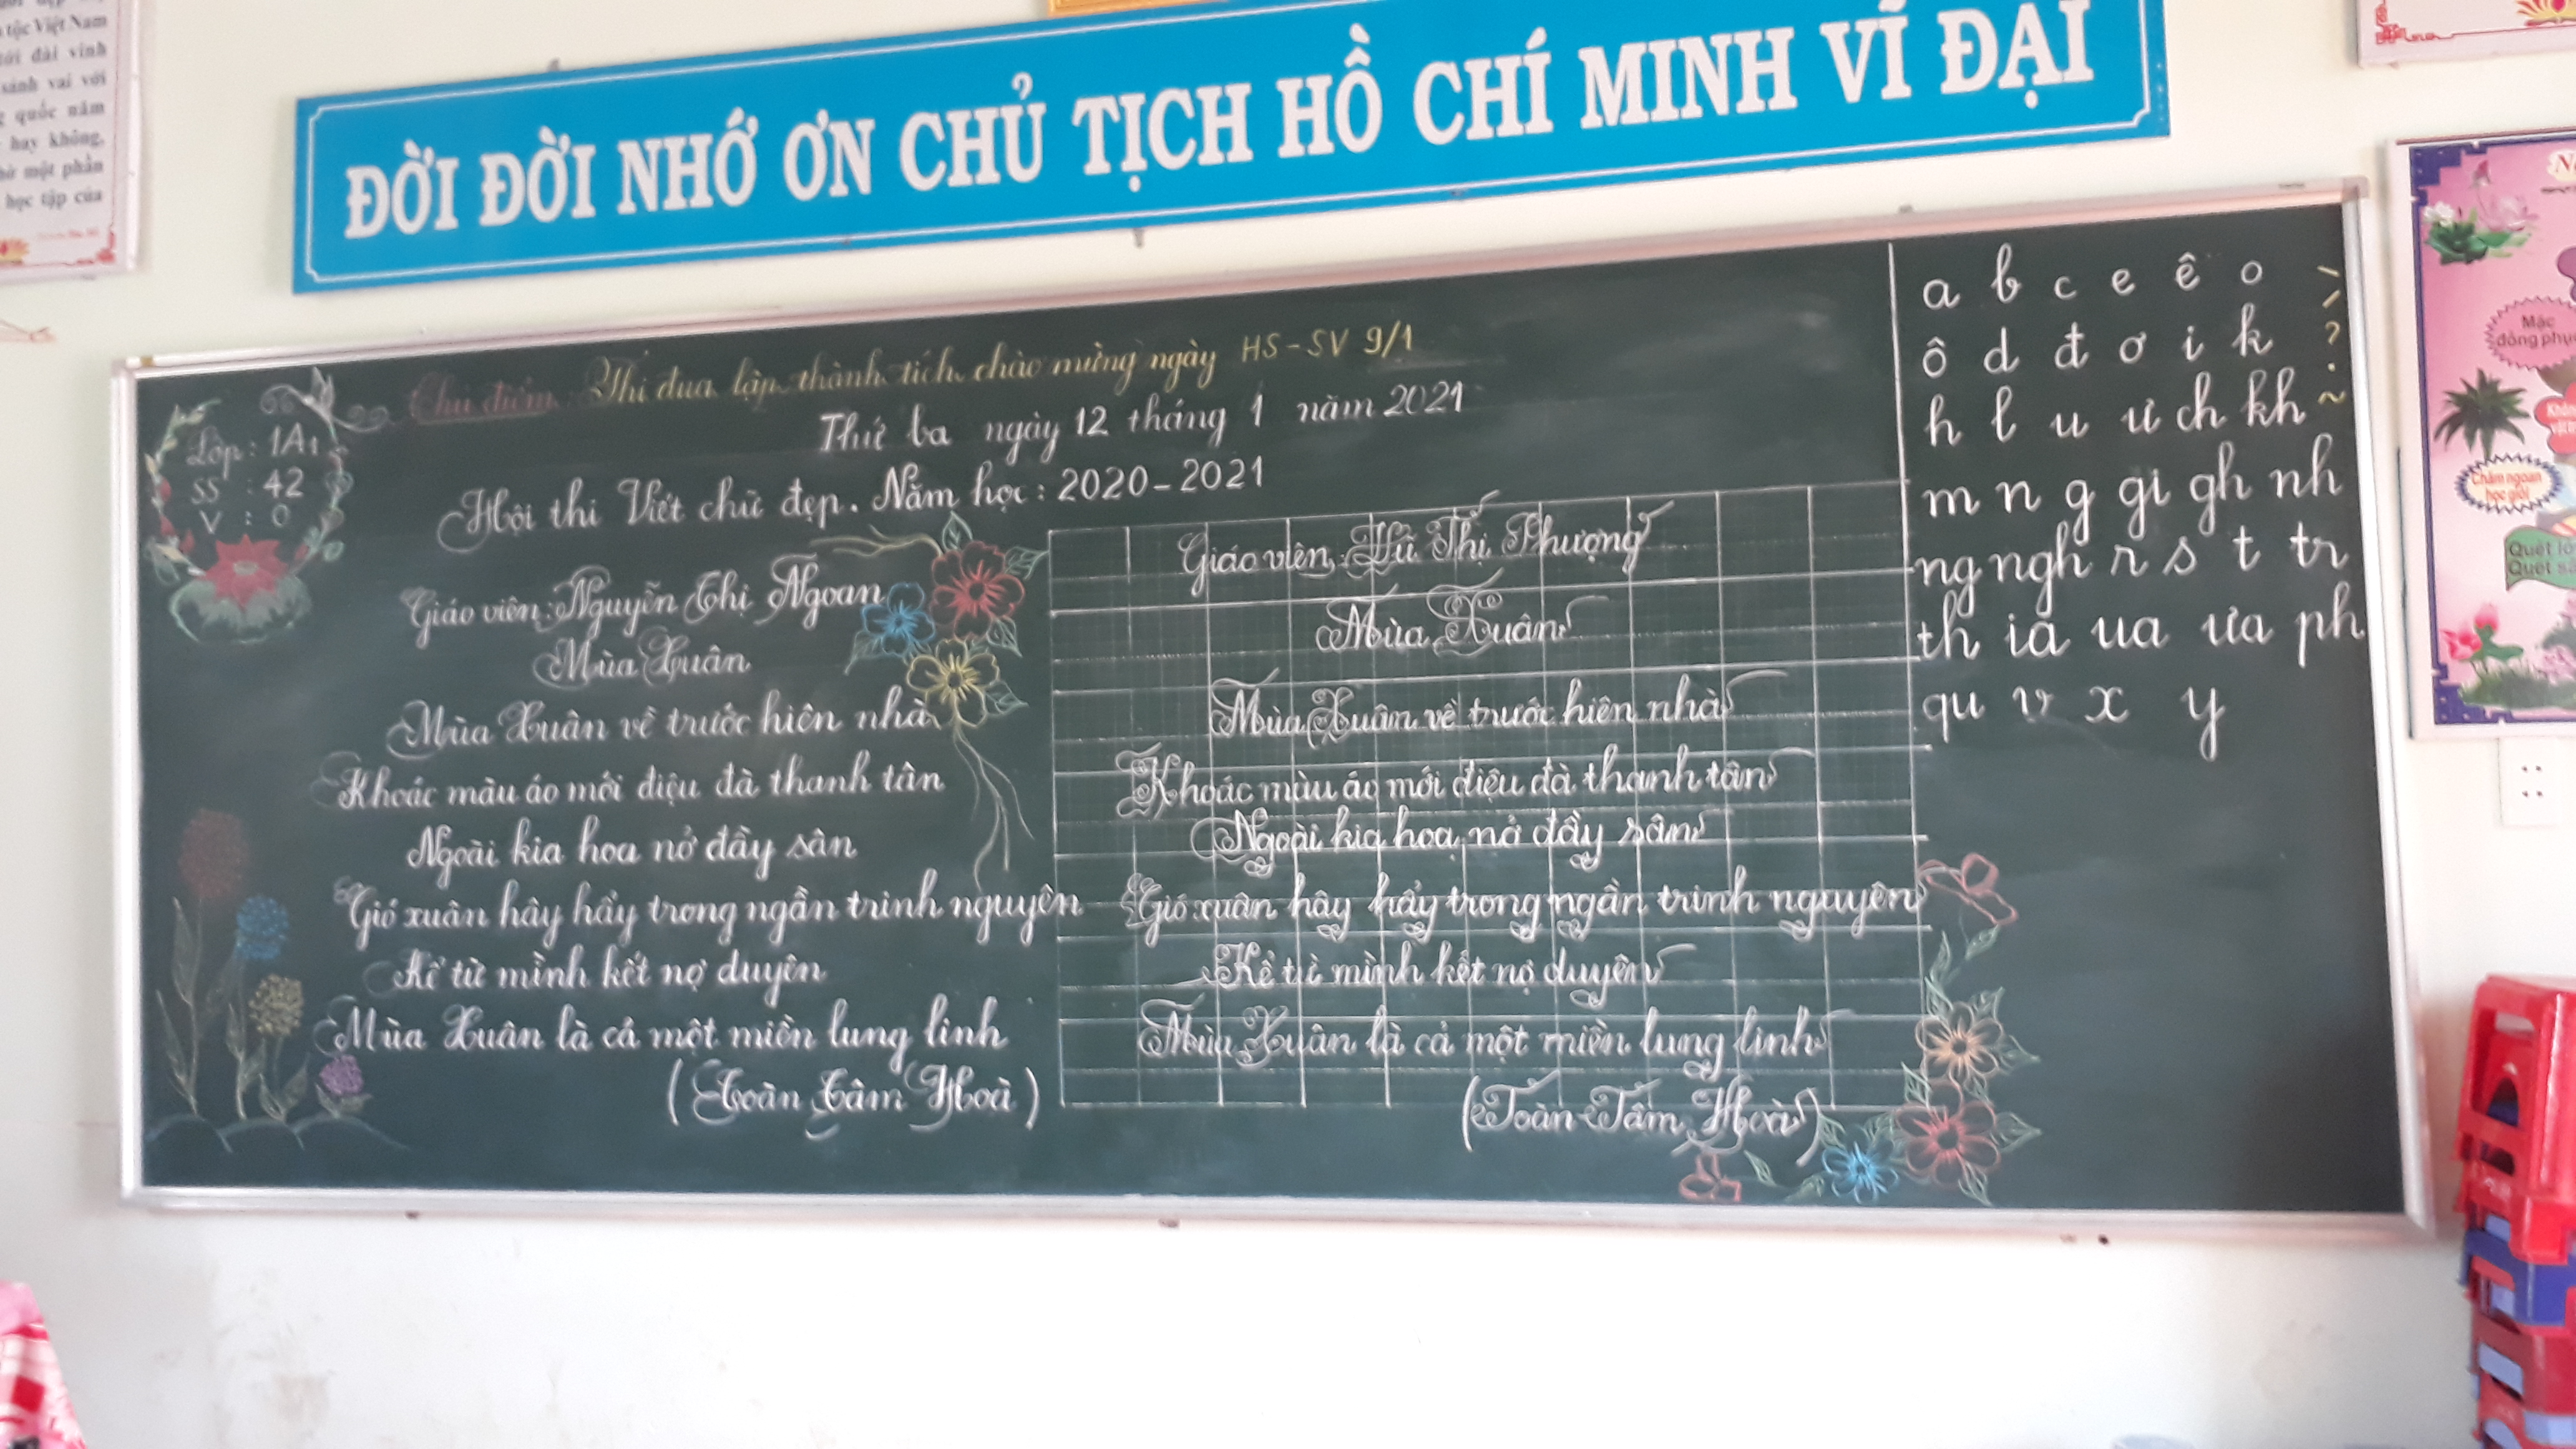 tộc Việt Nam
tới đài vinh
sánh vai với
quốc năm
hay không,
một phần
học tập của
ĐỜI ĐỜI NHỚ ƠN CHỦ TỊCH HỒ CHÍ MINH VĨ ĐẠI
Chủ điểm: Thi đua lập thành tích chào mừng ngày HS-SV 9/1
Thứ ba ngày 12 tháng 1 năm 2021
Lớp: 1A1
SS: 42
V: 0
Hội thi Viết chữ đẹp. Năm học: 2020-2021
Giáo viên: Nguyễn Thị Ngoan
Mùa Xuân
Mùa Xuân về trước hiên nhà
Khoác màu áo mới diệu đà thanh tân
Ngoài kia hoa nở đầy sân
Gió xuân hây hẩy trong ngần trinh nguyên
Kể từ mình kết nợ duyên
Mùa Xuân là cả một miền lung linh
(Toàn Tâm Hoà)
Giáo viên: Lữ Thị Phượng
Mùa Xuân
Mùa Xuân về trước hiên nhà
Khoác màu áo mới điệu đà thanh tân
Ngoài kia hoa nở đầy sân
Gió xuân hây hẩy trong ngần trinh nguyên
Kể từ mình kết nợ duyên
Mùa Xuân là cả một miền lung linh
(Toàn Tâm Hoà)
a b c e ê o \
ô d đ ơ i k / ? .
h l u ư ch kh ~
m n g gi gh nh
ng ngh r s t tr
th ia ua ưa ph
qu v x y
Mặc
đồng phục
Chăm ngoan
học giỏi
Quét
Quét